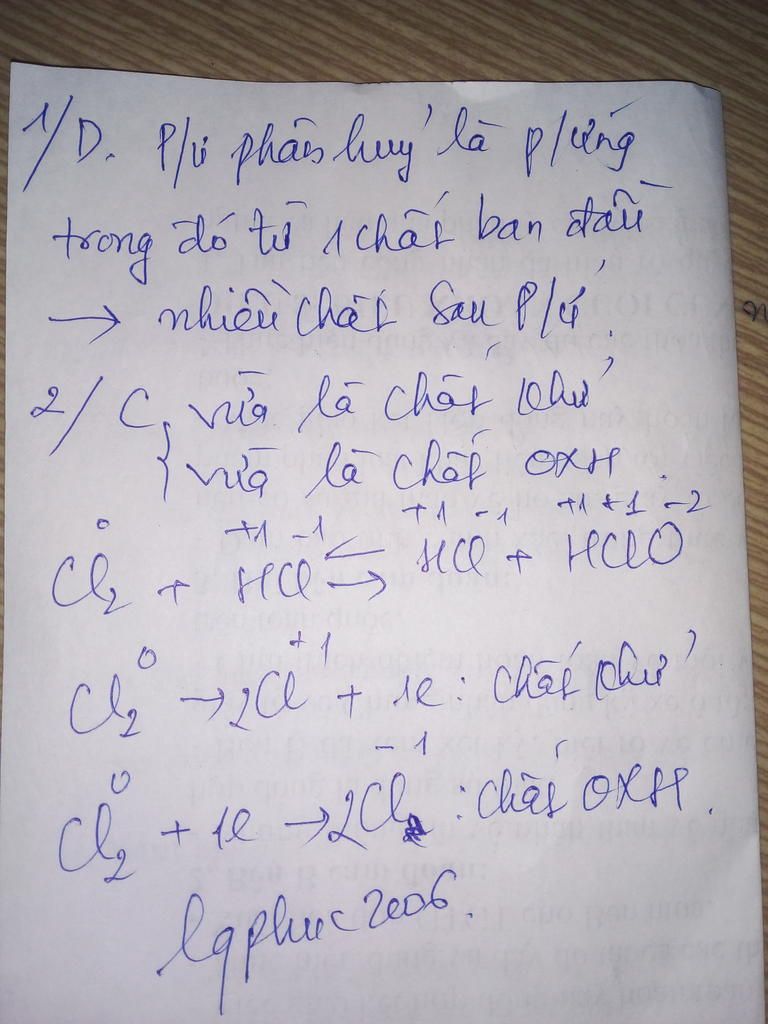 1/D. P/ư phân huỷ là p/ứng
trong đó từ 1 chất ban đầu
→ nhiều chất sau P/ứ
2/ C, vừa là chất khử
{ vừa là chất OXH.
0 +1 -1 +1 -1 +1 +1 -2
Cl2 + HCl ⇌ HCl + HClO
0 +1
Cl2 → 2Cl + 1e : chất khử
0 -1
Cl2 + 1e → 2Cl : chất OXH.
lqphuc2006.